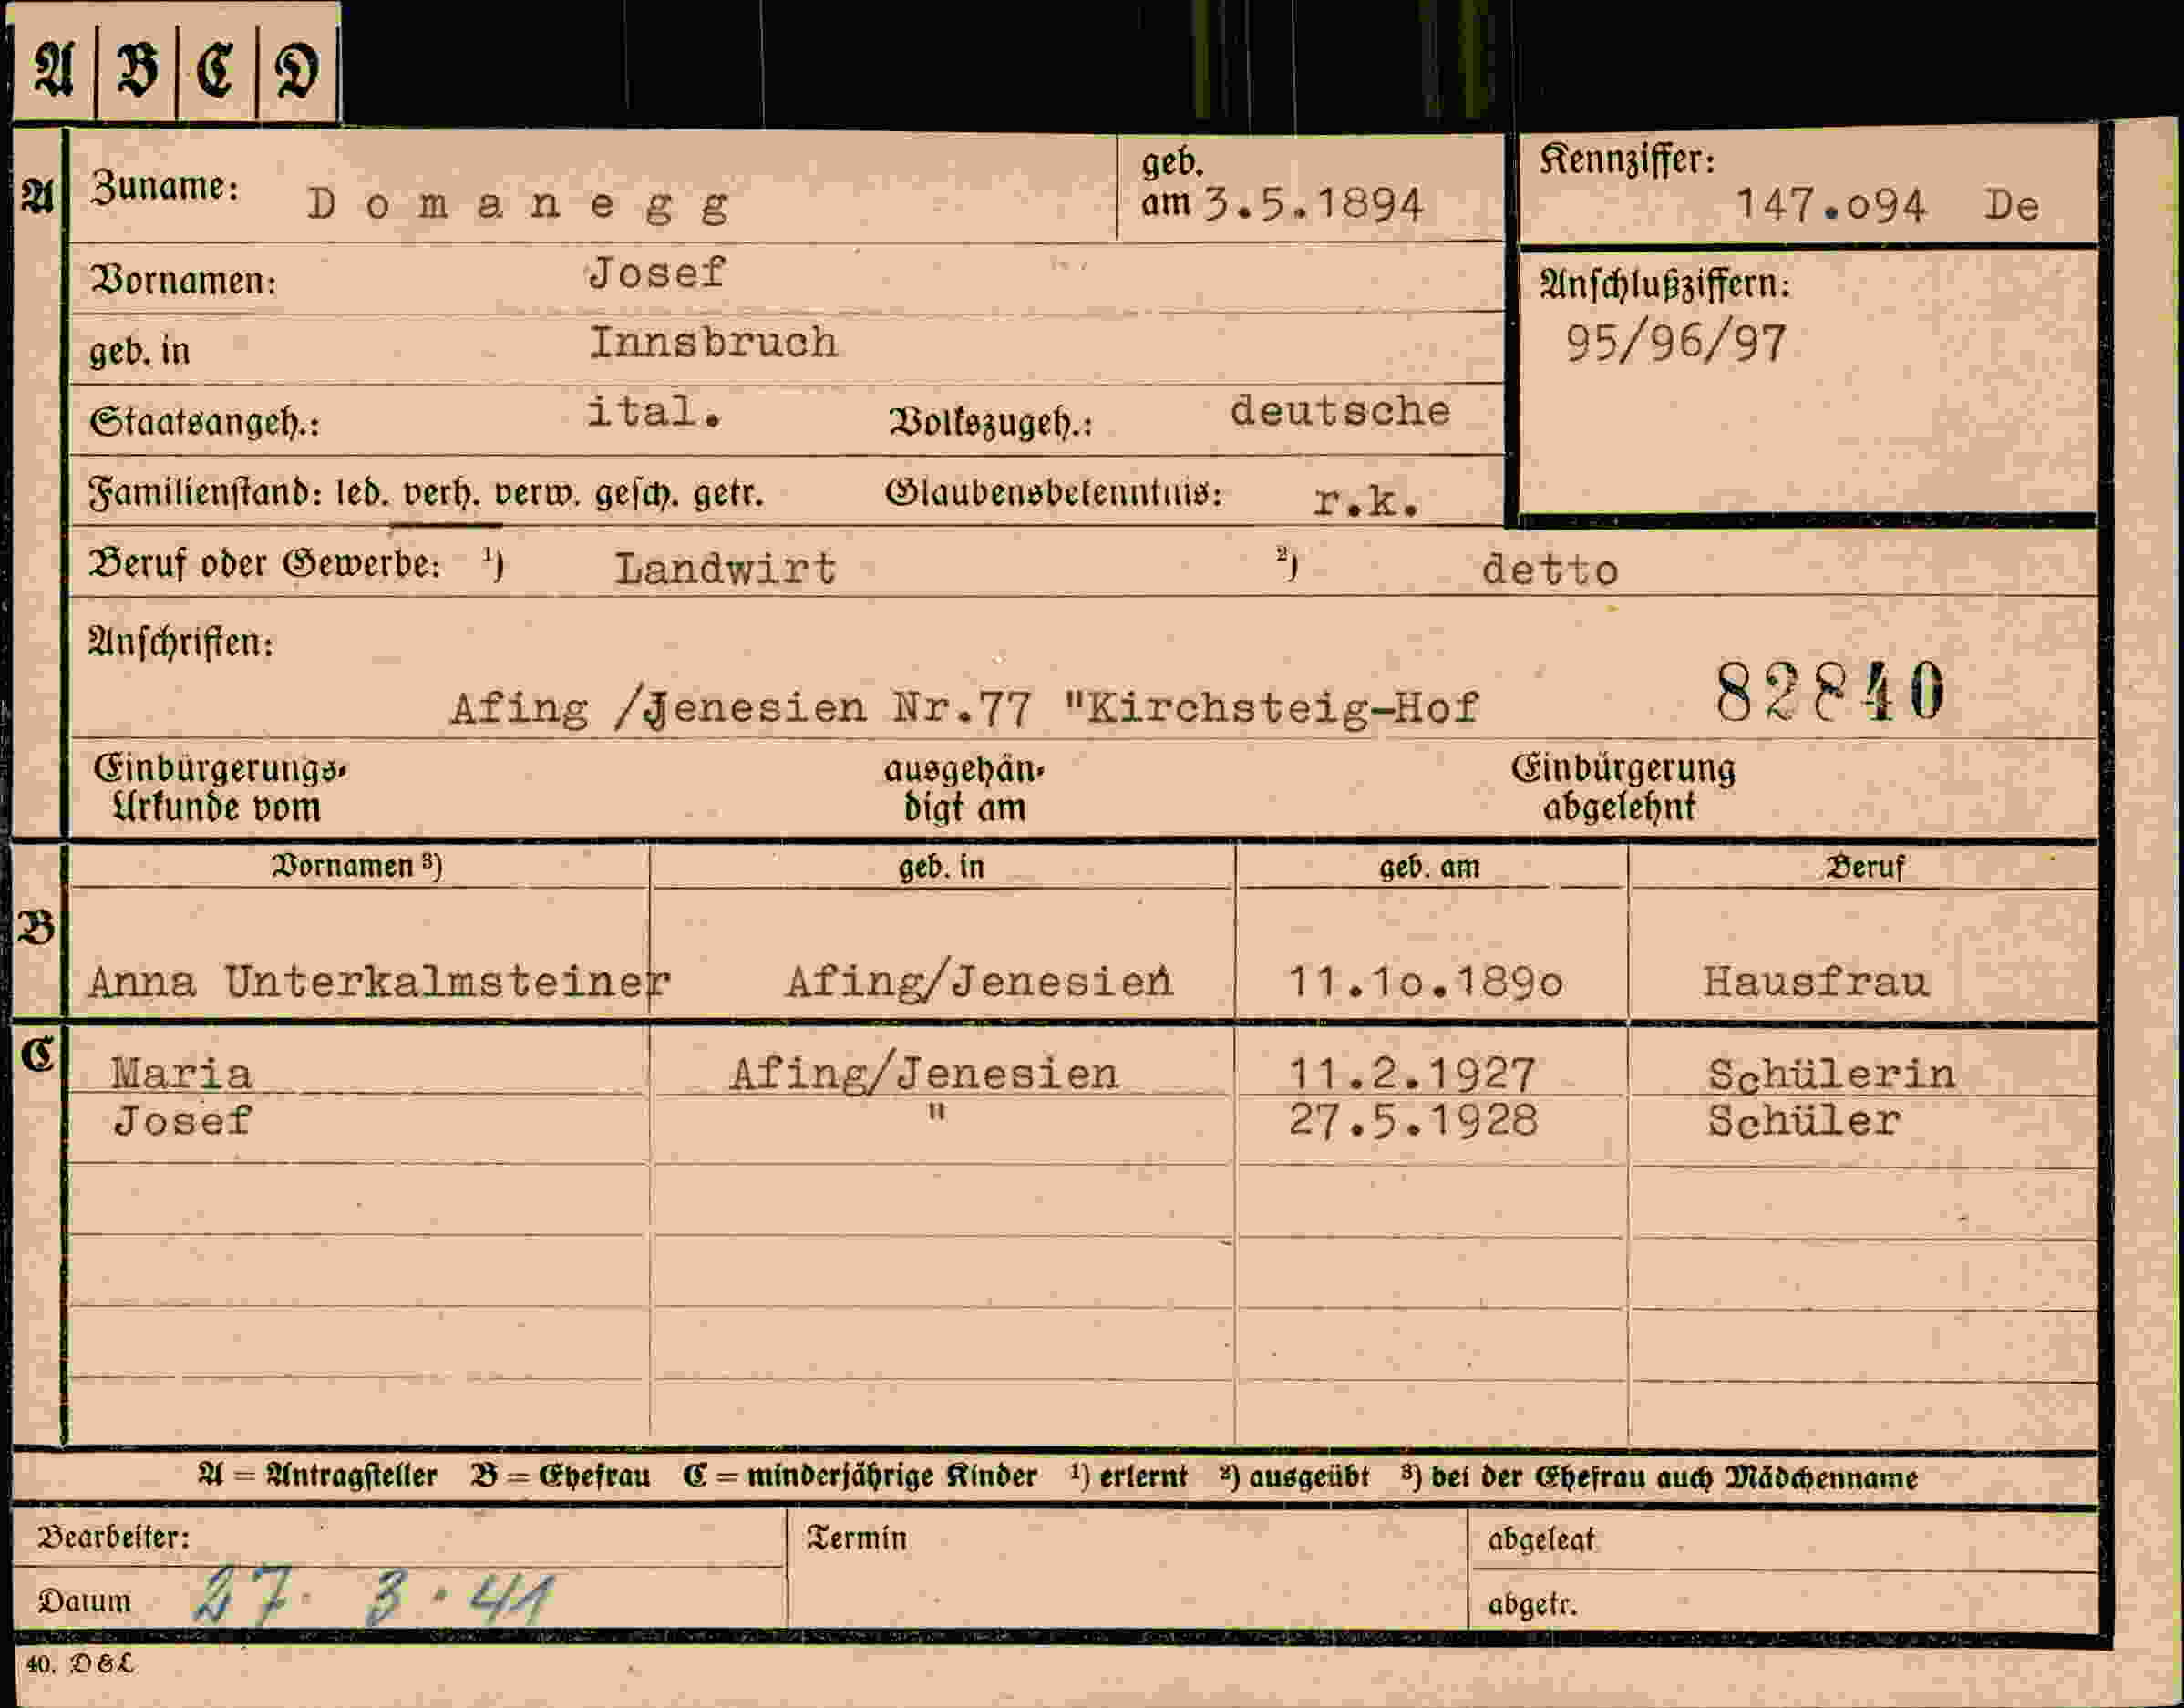 A B C D
A Zuname: Domanegg geb. am 3.5.1894 Kennziffer: 147.o94 De
Vornamen: Josef
Anschlußziffern:
geb. in Innsbruch 95/96/97
Staatsangeh.: ital. Volkszugeh.: deutsche
Familienstand: led. verh. verw. gesch. getr. Glaubensbekenntnis: r.k.
Beruf oder Gewerbe: ¹) Landwirt ²) detto
Anschriften:
Afing /Jenesien Nr.77 "Kirchsteig-Hof 82840
Einbürgerungs- ausgehän- Einbürgerung
Urkunde vom digt am abgelehnt
Vornamen ³) geb. in geb. am Beruf
B
Anna Unterkalmsteiner Afing/Jenesien 11.1o.189o Hausfrau
C Maria Afing/Jenesien 11.2.1927 Schülerin
Josef " 27.5.1928 Schüler
A = Antragsteller B = Ehefrau C = minderjährige Kinder ¹) erlernt ²) ausgeübt ³) bei der Ehefrau auch Mädchenname
Bearbeiter: Termin abgelegt
Datum 27. 3. 41 abgetr.
40. D&L